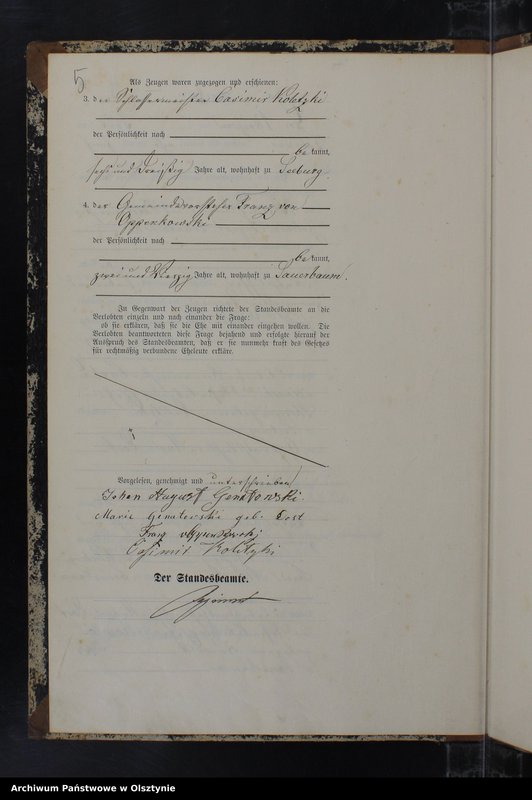 5
Als Zeugen waren zugezogen und erschienen:
3. der Schlossermeister Casimir Kolitzki
der Persönlichkeit nach
be kannt,
sechs und dreißig Jahre alt, wohnhaft zu Seeburg.
4. der Gemeindevorsteher Franz von
Oppenkowski
der Persönlichkeit nach
be kannt,
zwei und vierzig Jahre alt, wohnhaft zu Sauerbaum.
In Gegenwart der Zeugen richtete der Standesbeamte an die
Verlobten einzeln und nach einander die Frage:
ob sie erklären, daß sie die Ehe mit einander eingehen wollen. Die
Verlobten beantworteten diese Frage bejahend und erfolgte hierauf der
Ausspruch des Standesbeamten, daß er sie nunmehr kraft des Gesetzes
für rechtmäßig verbundene Eheleute erkläre.
Vorgelesen, genehmigt und unterschrieben
Johan August
Marie geb.
Franz
Casimir Kolitzki
Der Standesbeamte.
Archiwum Państwowe w Olsztynie